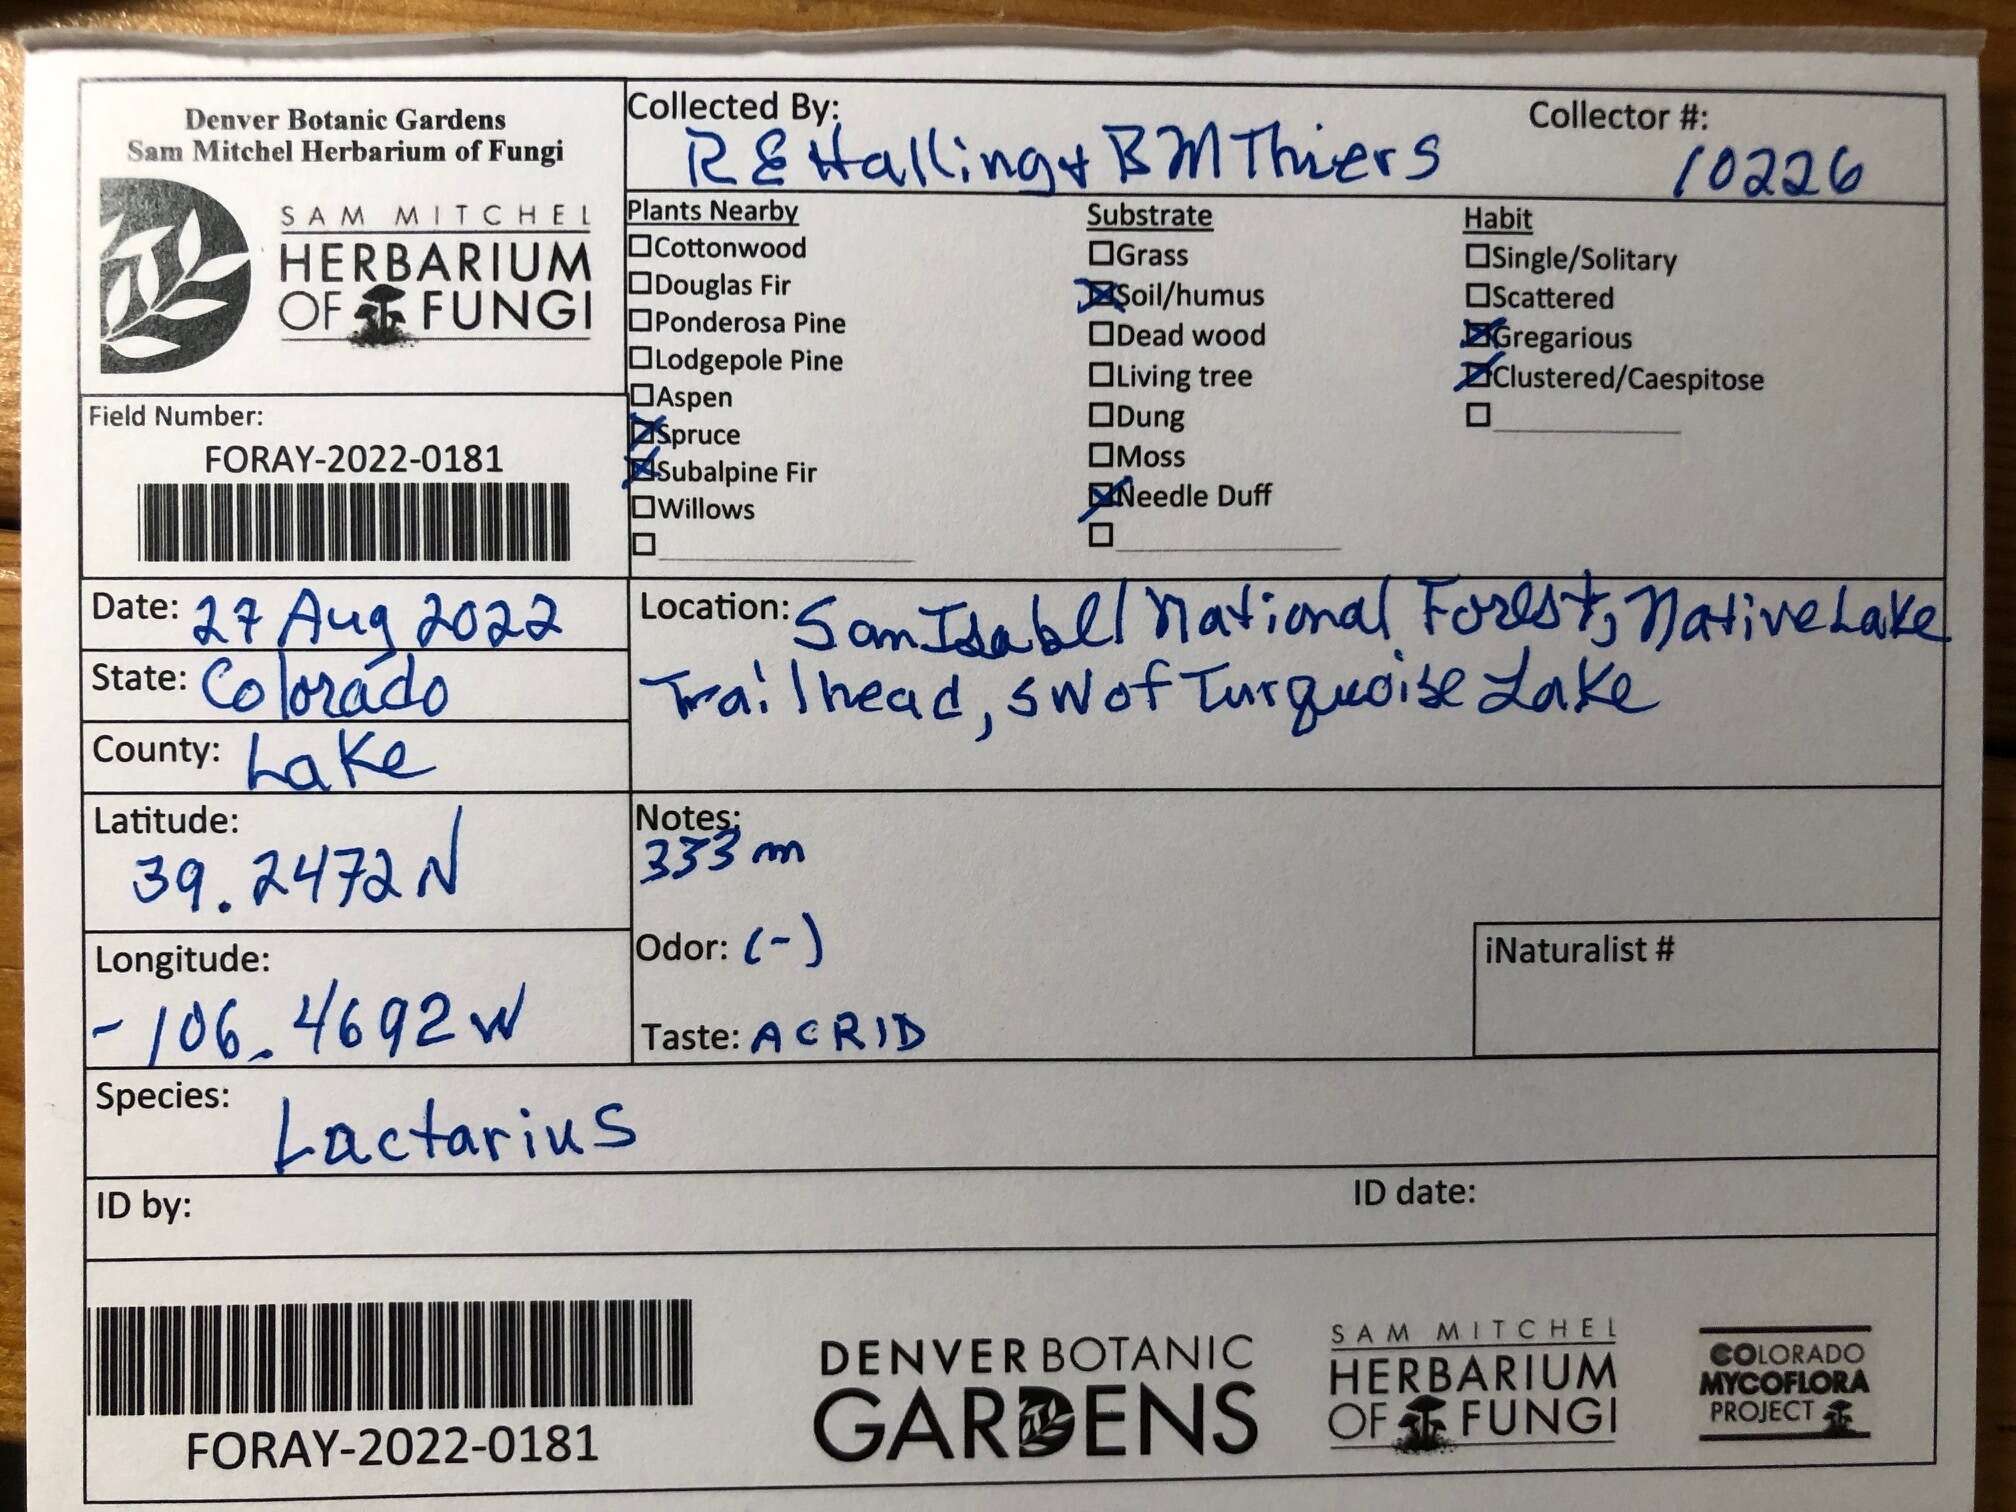 Denver Botanic Gardens
Sam Mitchel Herbarium of Fungi
SAM MITCHEL
HERBARIUM
OF FUNGI
Collected By:
R E Halling + B M Thiers
Collector #:
10226
Plants Nearby
Cottonwood
Douglas Fir
Ponderosa Pine
Lodgepole Pine
Aspen
Spruce
Subalpine Fir
Willows
Substrate
Grass
Soil/humus
Dead wood
Living tree
Dung
Moss
Needle Duff
Habit
Single/Solitary
Scattered
Gregarious
Clustered/Caespitose
Field Number:
FORAY-2022-0181
Date: 27 Aug 2022
State: Colorado
County: Lake
Location: San Isabel National Forest, Native Lake
Trailhead, SW of Turquoise Lake
Latitude:
39.2472 N
Longitude:
-106.4692 W
Notes:
333 m
Odor: (-)
Taste: ACRID
iNaturalist #
Species: Lactarius
ID by:
ID date:
FORAY-2022-0181
DENVER BOTANIC
GARDENS
SAM MITCHEL
HERBARIUM
OF FUNGI
COLORADO
MYCOFLORA
PROJECT